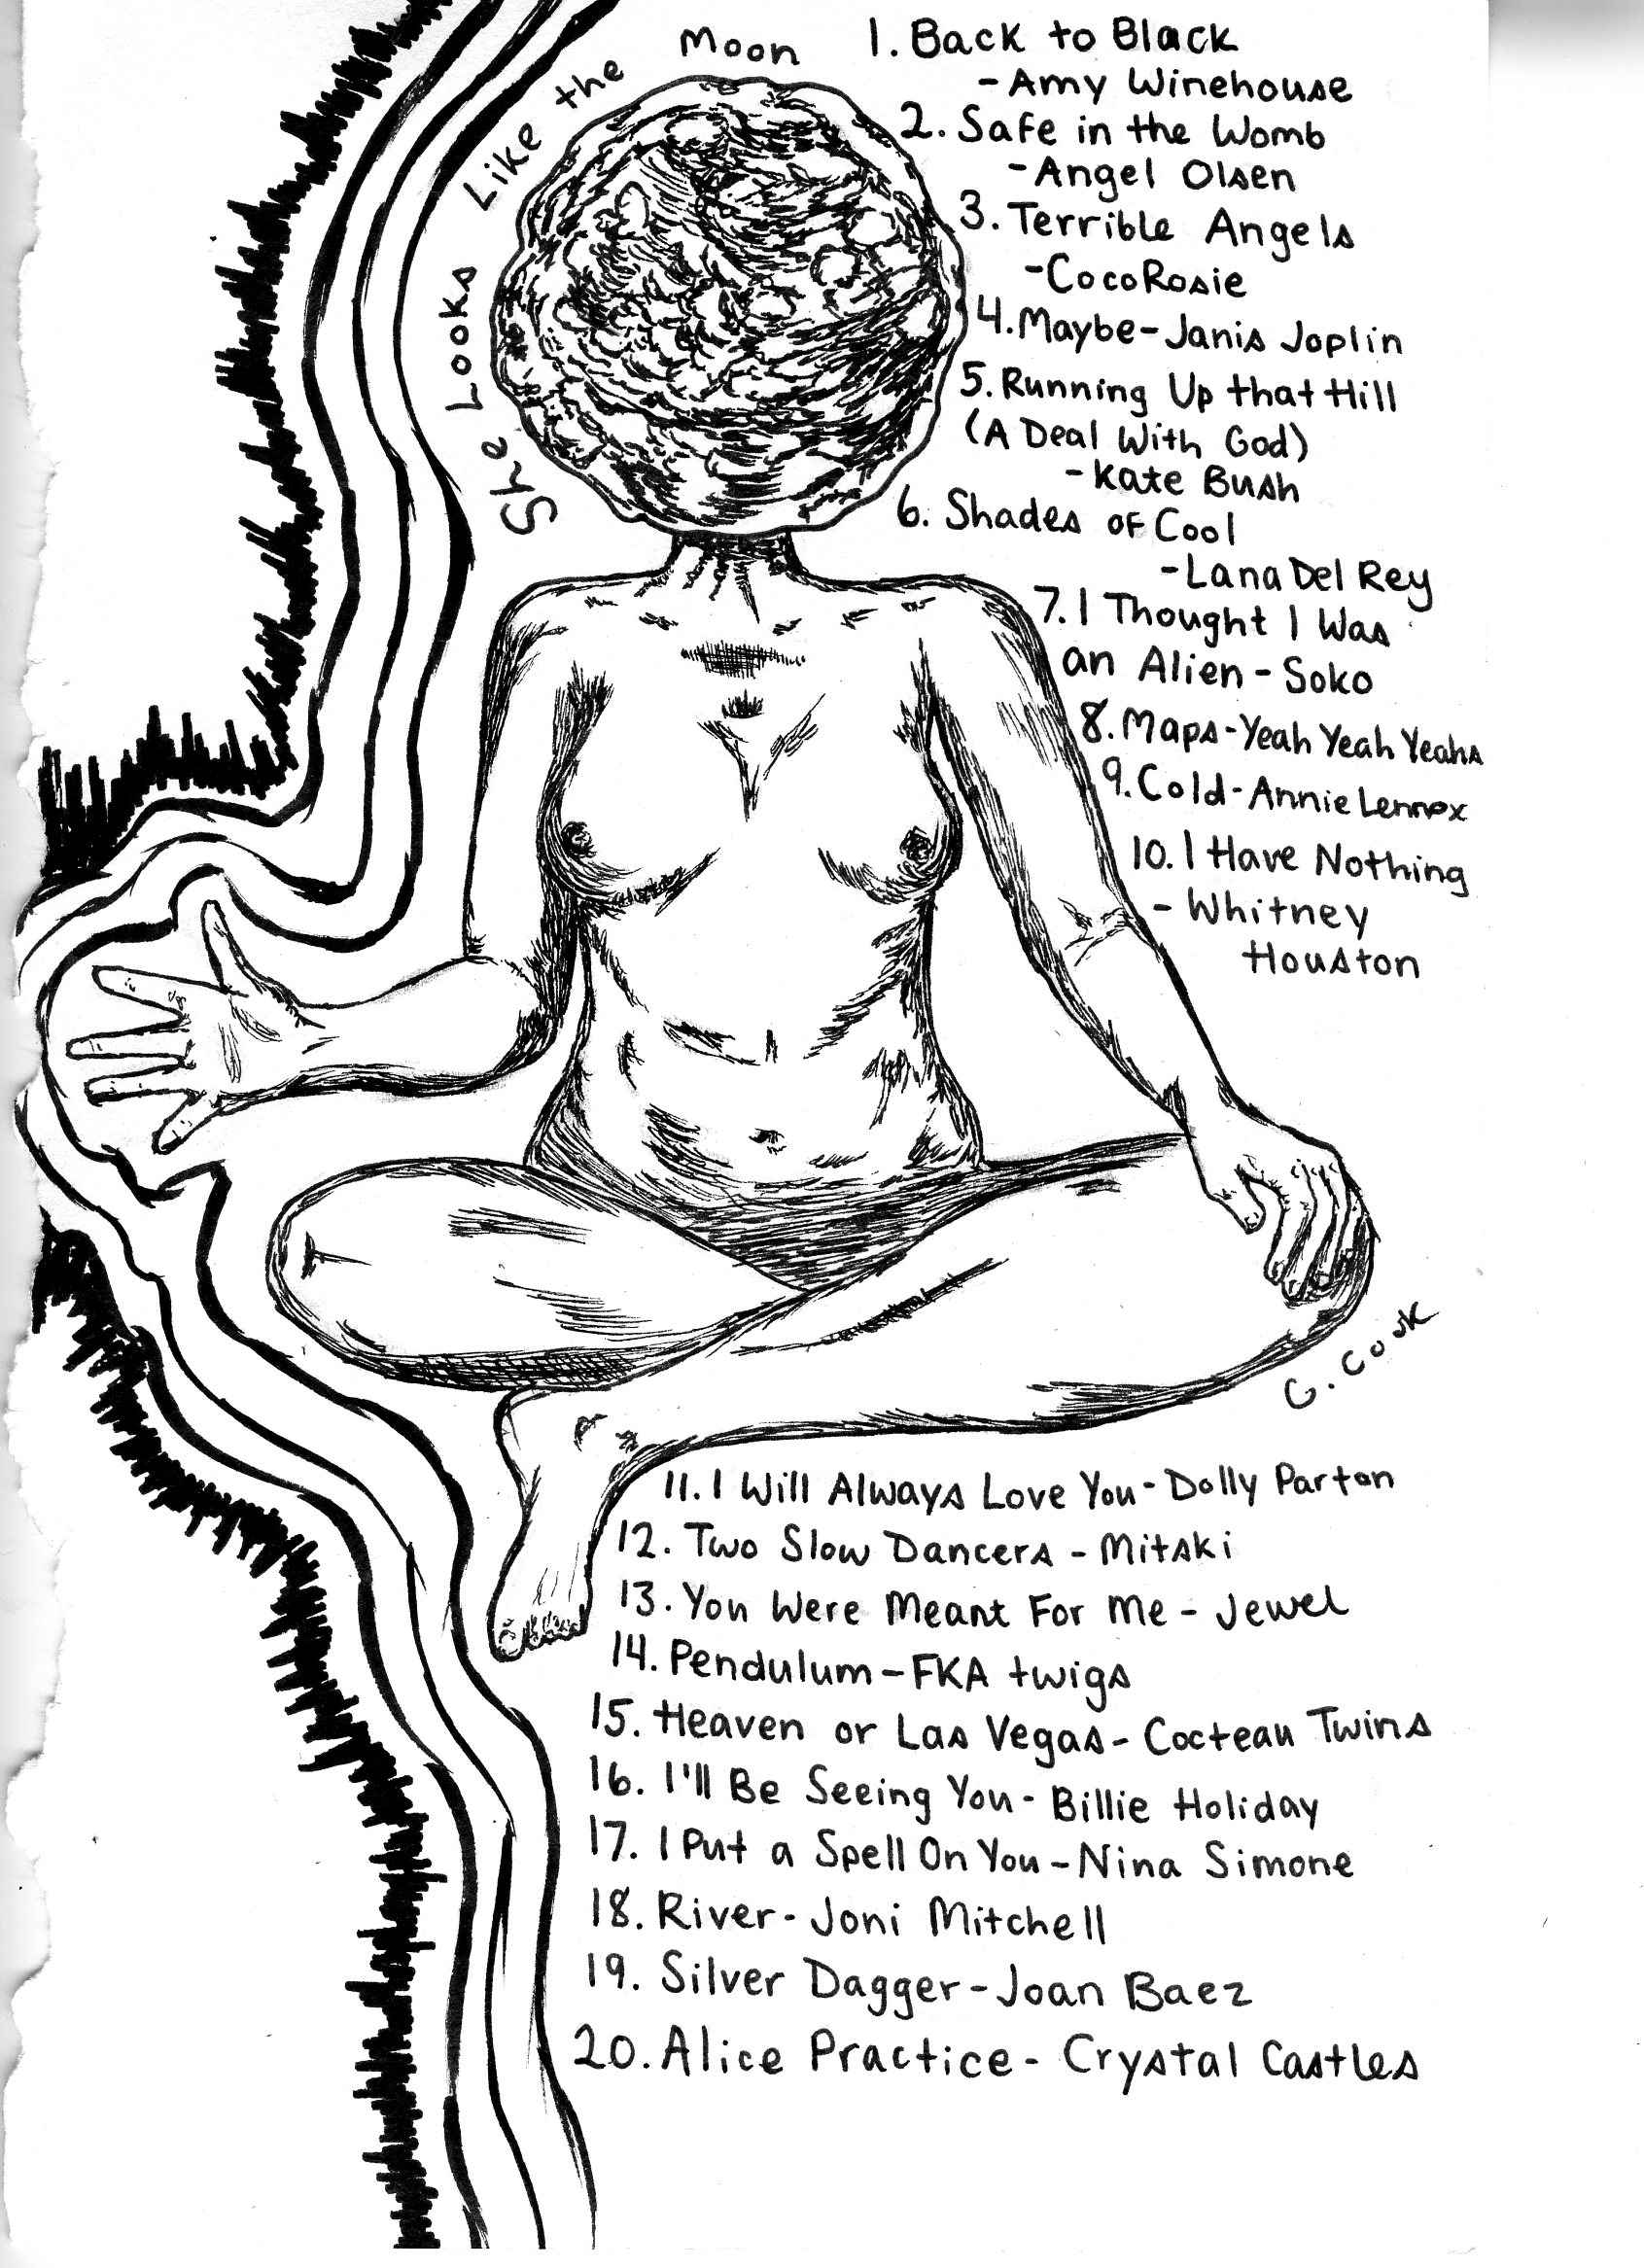 She Looks Like the Moon
1. Back to Black
- Amy Winehouse
2. Safe in the Womb
- Angel Olsen
3. Terrible Angels
- CocoRosie
4. Maybe - Janis Joplin
5. Running Up that Hill
(A Deal With God)
- Kate Bush
6. Shades of Cool
- Lana Del Rey
7. I Thought I Was
an Alien - Soko
8. Maps - Yeah Yeah Yeahs
9. Cold - Annie Lennox
10. I Have Nothing
- Whitney
Houston
G. Cook
11. I Will Always Love You - Dolly Parton
12. Two Slow Dancers - Mitski
13. You Were Meant For Me - Jewel
14. Pendulum - FKA twigs
15. Heaven or Las Vegas - Cocteau Twins
16. I'll Be Seeing You - Billie Holiday
17. I Put a Spell On You - Nina Simone
18. River - Joni Mitchell
19. Silver Dagger - Joan Baez
20. Alice Practice - Crystal Castles